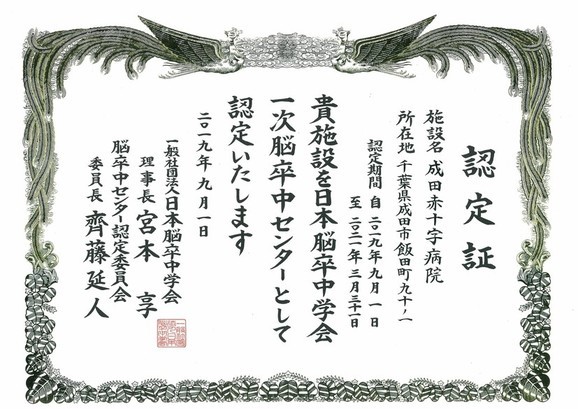 認定証
施設名 成田赤十字病院
所在地 千葉県成田市飯田町九十ノ一
認定期間 自 二〇一九年 九月 一日
至 二〇二一年 三月三十一日
貴施設を日本脳卒中学会
一次脳卒中センターとして
認定いたします
二〇一九年 九月 一日
一般社団法人日本脳卒中学会
理事長 宮本 享
脳卒中センター認定委員会
委員長 齊藤延人